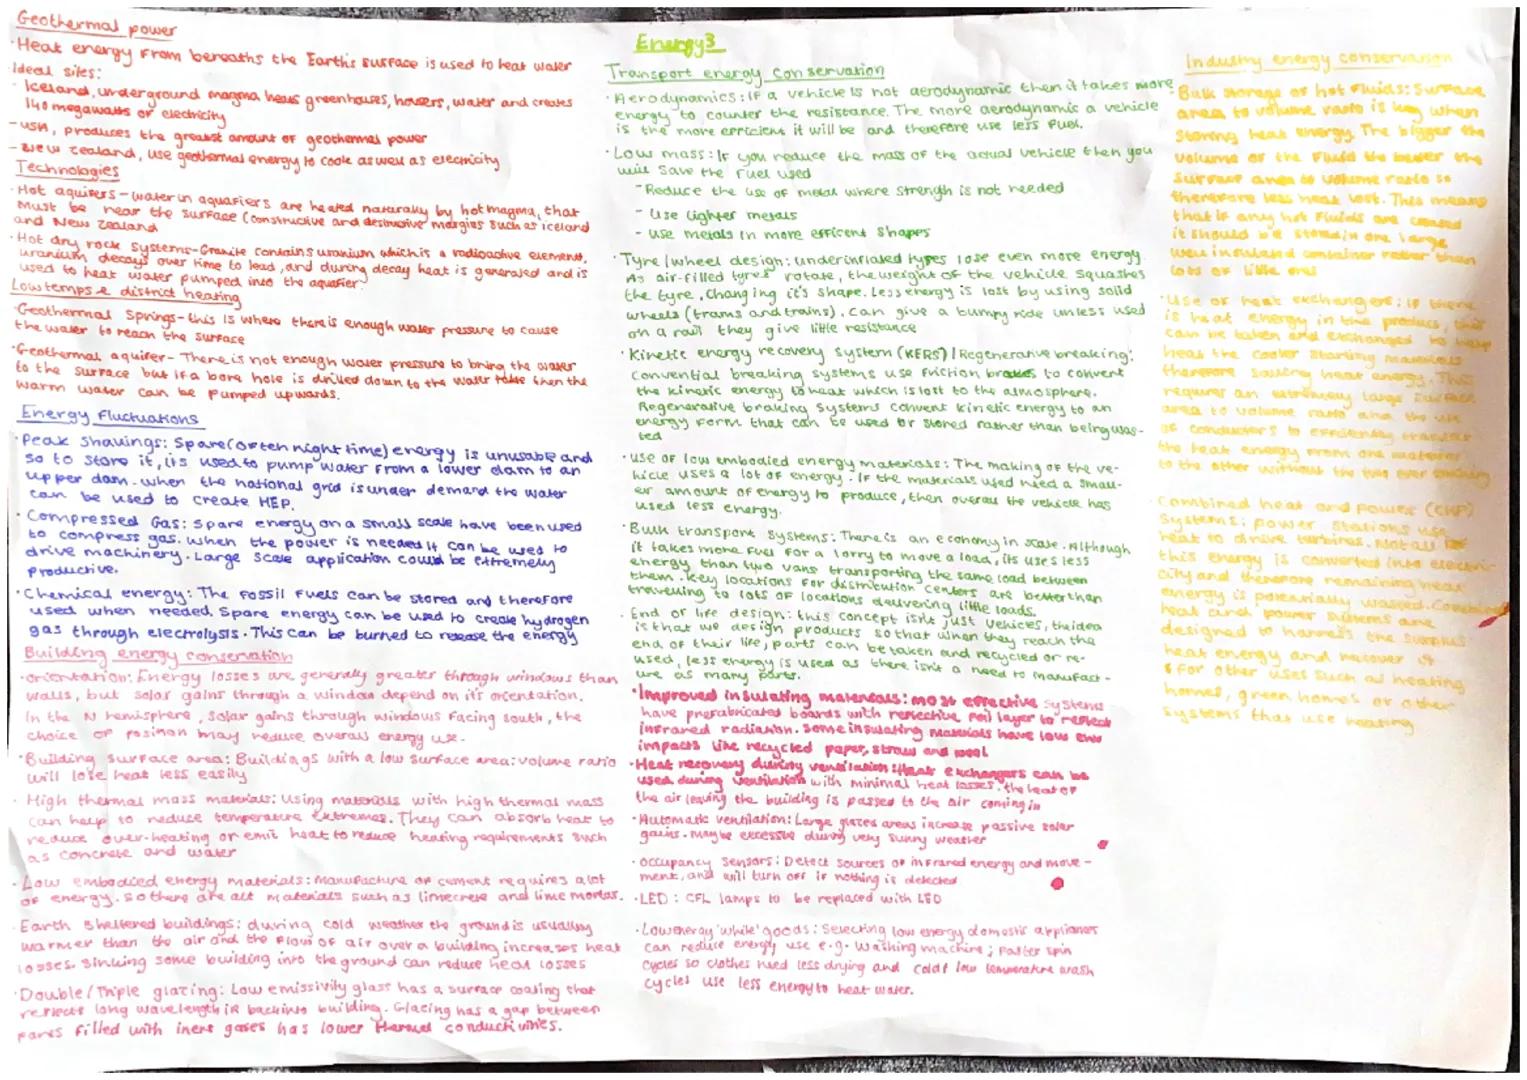 Geothermal power
·Heat energy from bereaths the Earth's surface is used to heat water
·Ideal sites:
- Iceland, underground magma heats greenhouses, housers, water and creates
140 megawatts of electricity
-USA, produces the greatest amount of geothermal power
-New Zealand, use geothermal energy to cook as well as electricity
Technologies
·Hot aquifers-water in aquafiers are heated naturally by hot magma, that
must be near the surface (constructive and destructive margins such as iceland
and New Zealand
·Hot dry rock systems-Granite contains uranium which is a radioactive element,
uranium decays over time to lead, and during decay heat is generated and is
used to heat water pumped into the aquafier.
Low temps & district heating
·Geothermal Springs-this is where there is enough water pressure to cause
the water to reach the surface
·Geothermal aquifer- There is not enough water pressure to bring the water
to the surface but if a bore hole is drilled down to the water table then the
warm water can be pumped upwards.
Energy Fluctuations
·Peak Shavings: Spare (often night time) energy is unusable and
so to store it, its used to pump water from a lower dam to an
upper dam. when the national grid is under demand the water
can be used to create HEP.
·Compressed Gas: Spare energy on a small scale have been used
to compress gas. when the power is needed it can be used to
drive machinery. Large scale application could be extremely
productive.
·Chemical energy: The fossil fuels can be stored and therefore
used when needed. Spare energy can be used to create hydrogen
gas through electrolysis. This can be burned to release the energy
Building energy conservation
·orientation: Energy losses are generally greater through windows than
walls, but solar gains through a window depend on it's orientation.
In the N hemisphere, solar gains through windows facing south, the
choice of position may reduce overall energy use.
·Building surface area: Buildings with a low surface area: volume ratio
will lose heat less easily
· High thermal mass materials: Using materials with high thermal mass
can help to reduce temperature extremes. They can absorb heat to
reduce over-heating or emit heat to reduce heating requirements such
as concrete and water
· Low embodied energy materials: Manufacture of cement requires a lot
of energy. so there are alt materials such as limecrete and lime mortar.
·Earth sheltered buildings: during cold weather the ground is usually
warmer than the air and the flow of air over a building increases heat
losses. Sinking some building into the ground can reduce heat losses
·Double/Triple glazing: Low emissivity glass has a surface coating that
reflects long wavelength IR back into building. Glazing has a gap between
panes filled with inert gases has lower thermal conductivities.
Energy 3
Transport energy conservation
·Aerodynamics: If a vehicle is not aerodynamic then it takes more
energy to counter the resistance. The more aerodynamic a vehicle
is the more efficient it will be and therefore use less fuel.
·Low mass: If you reduce the mass of the actual vehicle then you
will save the fuel used
-Reduce the use of metal where strength is not needed
- Use lighter metals
- use metals in more efficent shapes
·Tyre/wheel design: underinflated tyres lose even more energy.
As air-filled tyres rotate, the weight of the vehicle squashes
the tyre, changing it's shape. Less energy is lost by using solid
wheels (trams and trains). Can give a bumpy ride unless used
on a rail they give little resistance
·Kinetic energy recovery system (KERS)/Regenerative breaking:
Convential breaking systems use friction brakes to convert
the kinetic energy to heat which is lost to the atmosphere.
Regenerative braking systems convert kinetic energy to an
energy form that can be used or stored rather than being was-
ted
·use of low embodied energy materials: The making of the ve-
hicle uses a lot of energy. If the materials used need a small-
er amount of energy to produce, then overall the vehicle has
used less energy.
·Bulk transport systems: There is an economy in scale. Although
it takes more fuel for a lorry to move a load, its uses less
energy than two vans transporting the same load between
them. Key locations for distribution centers are better than
travelling to lots of locations delivering little loads.
· End of life design: this concept isnt just vehices, the idea
is that we design products so that when they reach the
end of their life, parts can be taken and recycled or re-
used, less energy is used as there isnt a need to manufact-
ure as many parts.
·Improved insulating materials: most effective systems
have prefabricated boards with reflective foil layer to reflect
infrared radiation. Some insulating materials have low env
impacts like recycled paper, straw and wool
·Heat recovery during ventilation: Heat exchangers can be
used during ventilation with minimal heat losses. the heat of
the air leaving the building is passed to the air coming in
·Automatic ventilation: Large glazed areas increase passive solar
gains. maybe excessive during very sunny weather
·occupancy sensors: Detect sources of infrared energy and move-
ment, and will turn off if nothing is detected
·LED: CFL lamps to be replaced with LED
·Low energy 'white' goods: Selecting low energy domestic appliances
can reduce energy use e.g. washing machine; faster spin
cycles so clothes need less drying and cold/low temperature wash
cycles use less energy to heat water.
Industry energy conservation
·Bulk storage of hot fluids: Surface
area to volume ratio is key when
storing heat energy. The bigger the
volume of the fluid the better the
surface area to volume ratio so
therefore less heat lost. This means
that if any hot fluids are
it should be stored in one large
well insulated container rather than
lots of little ones
·Use of heat exchangers: if there
is heat energy in the product, this
can be taken and exchanged to help
heat the cooler starting materials
therefore saving heat energy. This
requires an extremely large surface
area to volume ratio and the use
of conductors to efficiently transfer
the heat energy from one material
to the other without the two ever touching
·Combined heat and power (CHP)
systems: power stations use
heat to drive turbines. Not all of
this energy is converted into electri-
city and therefore remaining heat
energy is potentially wasted. Combined
heat and power systems are
designed to harness the surplus
heat energy and recover it
for other uses such as heating
homes, green homes or other
systems that use heating